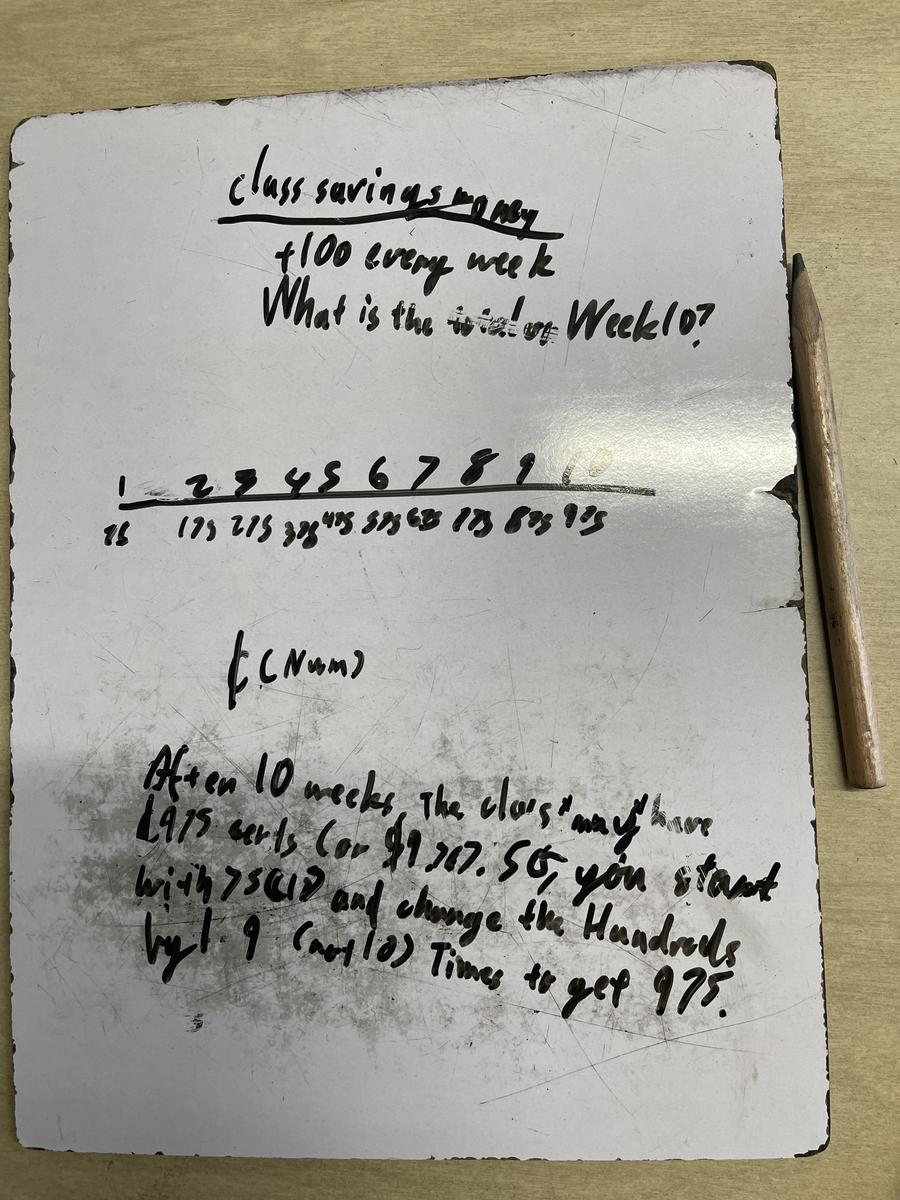 class savings money
+100 every week
What is the total on Week 10?
1 2 3 4 5 6 7 8 9 10
75 175 275 375 475 575 675 775 875 975
(Num)
After 10 weeks, The class "may" have
975 cents (or you start
with 75 and change the Hundreds
by 1. 9 (not 10) Times to get 975.